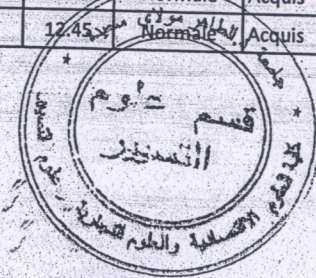 Acquis
12.45 Normale Acquis
الطاهر مولاي
جامعة
قسم
علوم
التسيير
كلية العلوم الاقتصادية والعلوم التجارية وعلوم التسيير